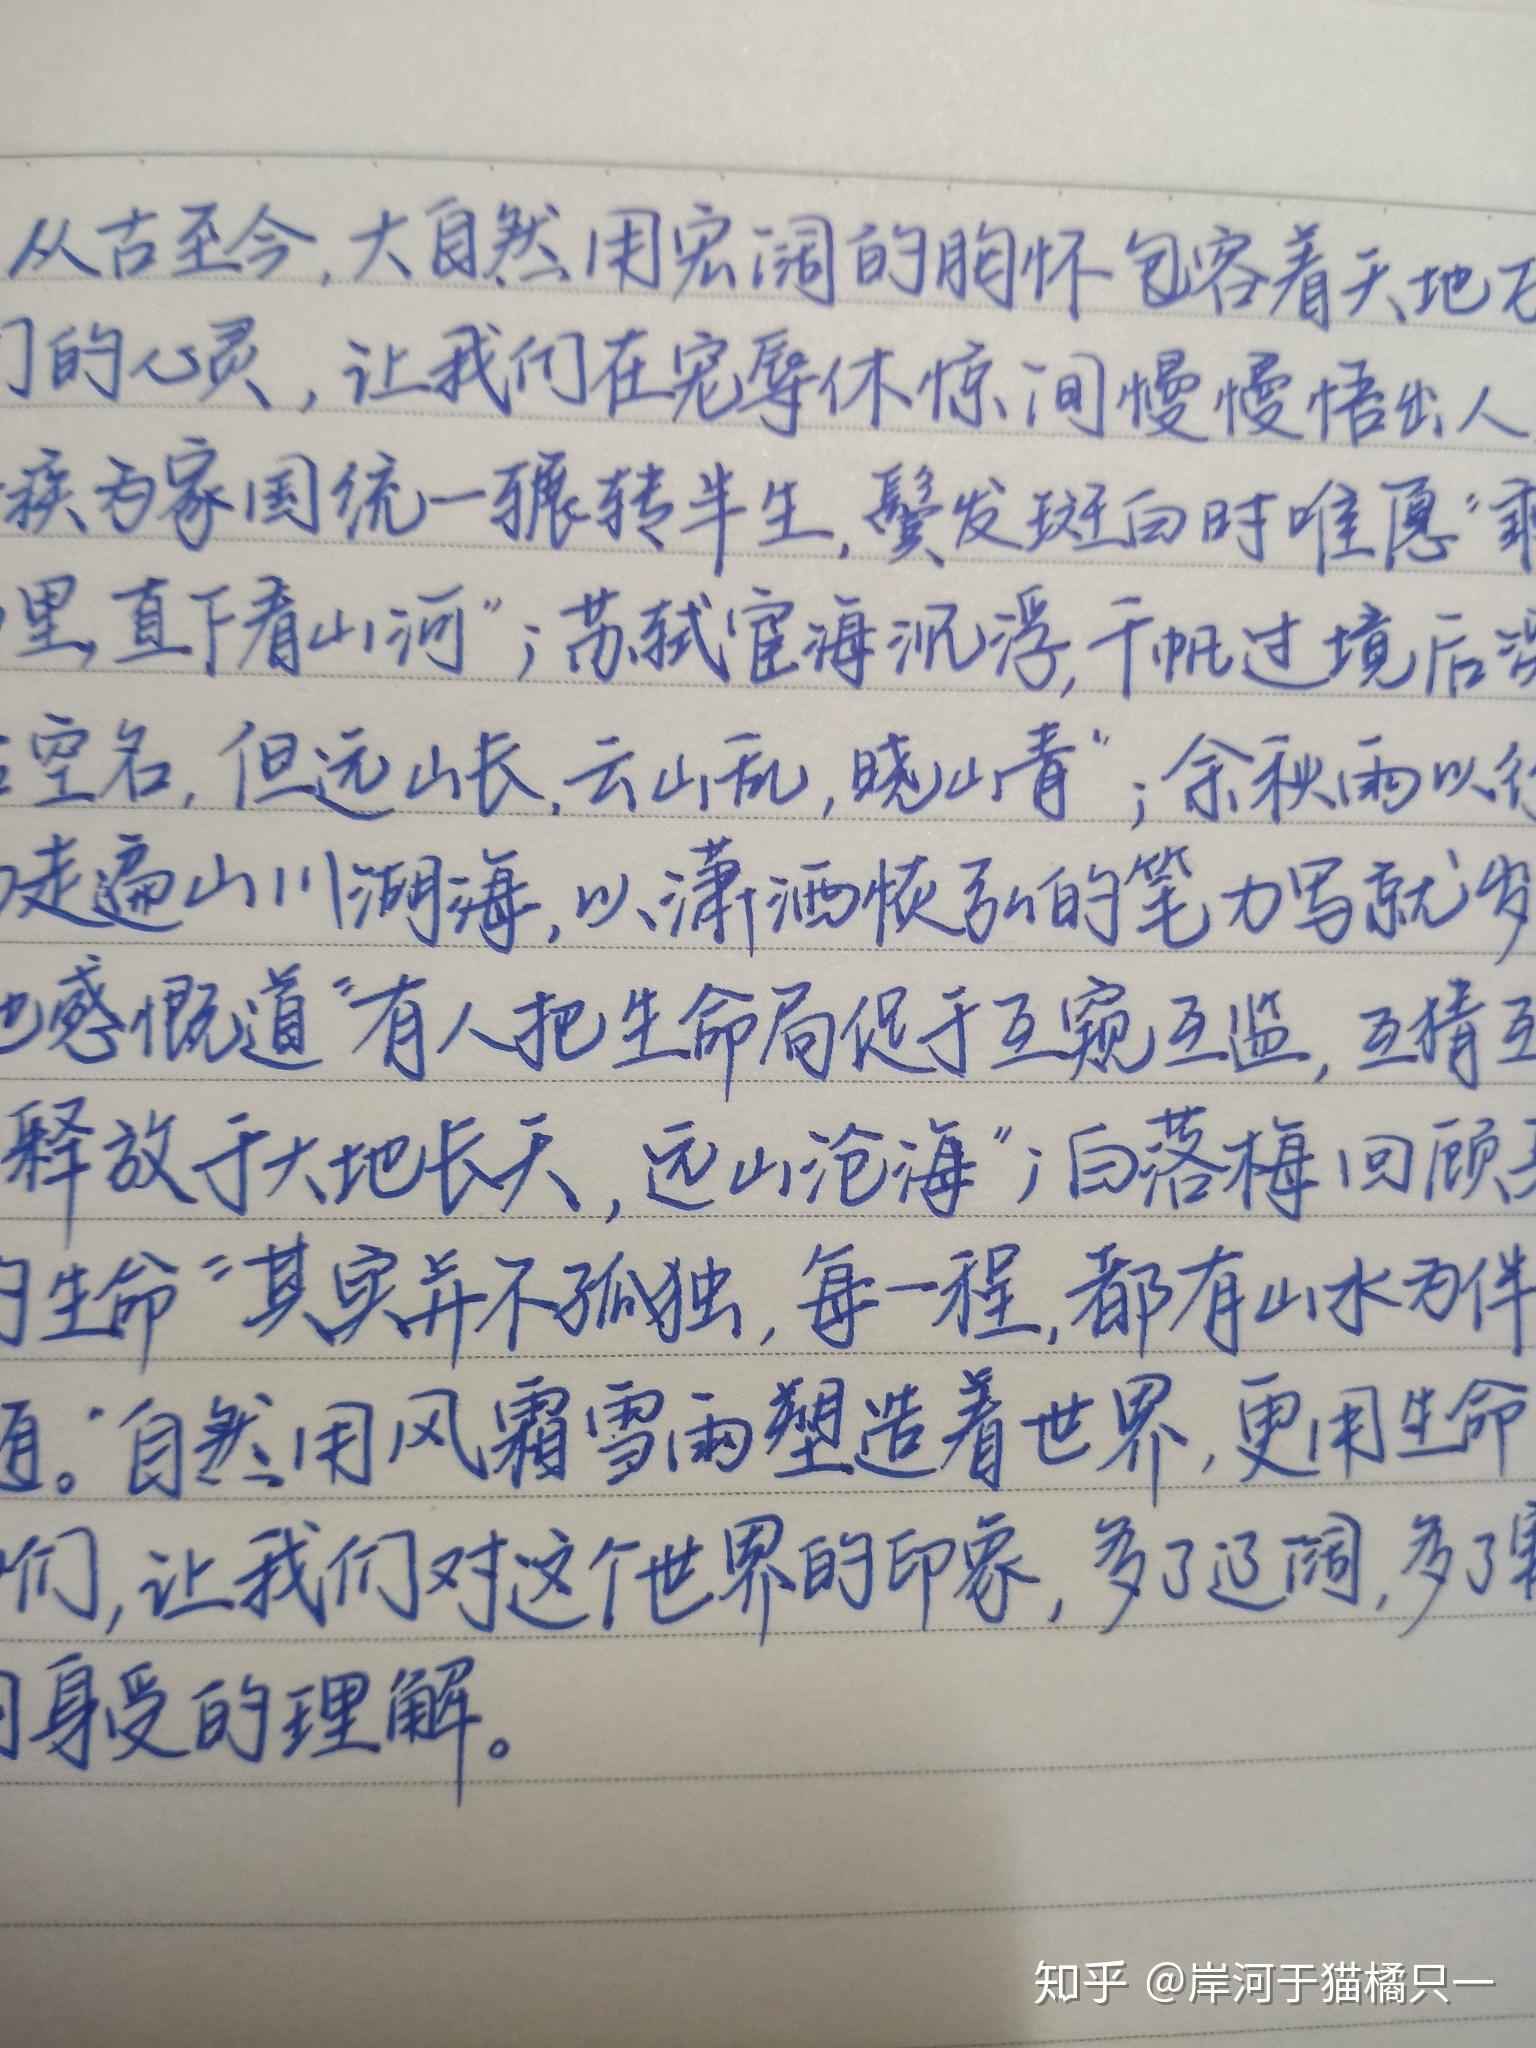 从古至今,大自然用宏阔的胸怀包容着天地万
们的心灵,让我们在宠辱休惊间慢慢悟出人
疾为家国统一辗转半生,鬓发斑白时唯愿“乘
里,直下看山河”;苏轼宦海沉浮,千帆过境后
空名,但远山长,云山乱,晓山青”;余秋雨以行
走遍山川湖海,以潇洒恢弘的笔力写就岁
他感慨道“有人把生命局促于互窥互监,互猜互
释放于大地长天,远山沧海”;白落梅回顾
的生命“其实并不孤独,每一程,都有山水为伴
随。”自然用风霜雪雨塑造着世界,更用生命
们,让我们对这个世界的印象,多了辽阔,多了
同身受的理解。
知乎 @岸河于猫橘只一